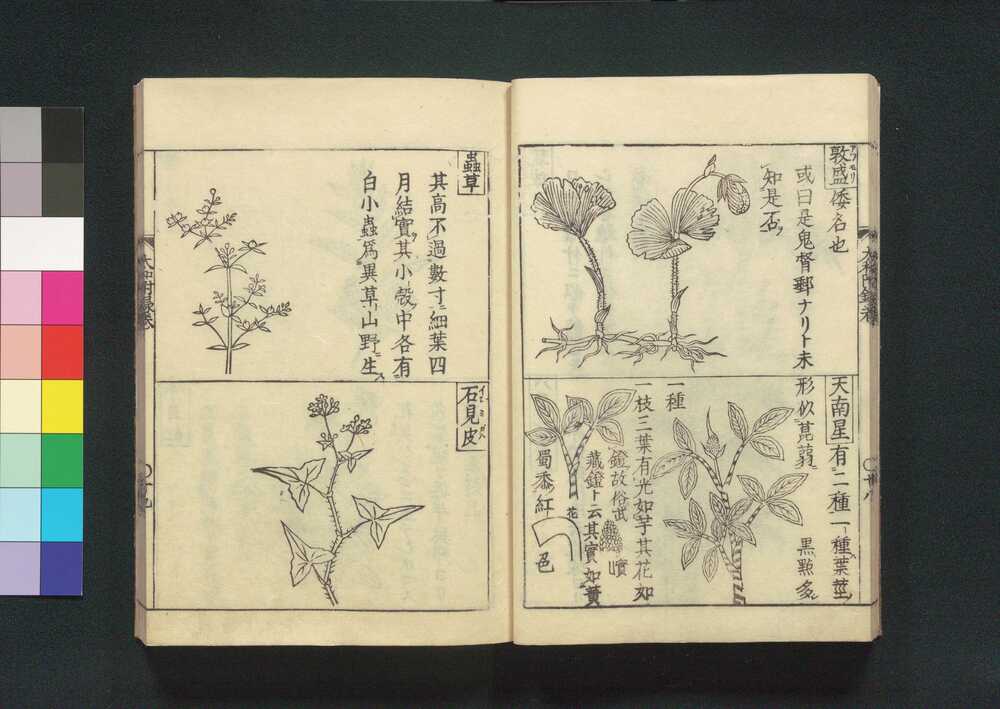 敦盛倭名也
アツモリ
或曰是鬼督郵ナリト未
知是否
天南星有二種一種葉莖
形似蒟蒻 黒點多
一種
一枝三葉有光如芋其花如
鐙故俗武
藏鐙ト云其實如黄
蜀黍紅
色
花
實
蟲草
其高不過數寸細葉四
月結實其小殻中各有
白小蟲爲異草山野生
石見皮